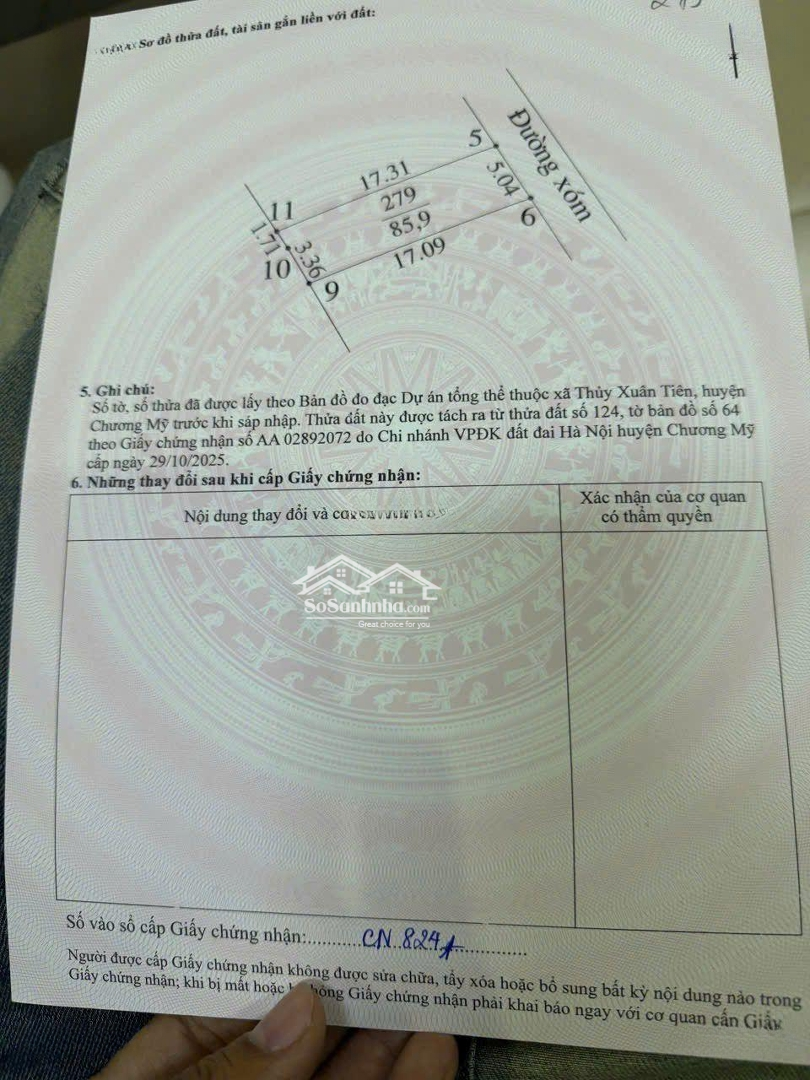 Sơ đồ thửa đất, tài sản gắn liền với đất:
Đường xóm
5
17.31
5.04
279
11
85,9
6
1.71
3.36
17.09
10
9
5. Ghi chú:
Số tờ, số thửa đã được lấy theo Bản đồ đo đạc Dự án tổng thể thuộc xã Thủy Xuân Tiên, huyện
Chương Mỹ trước khi sáp nhập. Thửa đất này được tách ra từ thửa đất số 124, tờ bản đồ số 64
theo Giấy chứng nhận số AA 02892072 do Chi nhánh VPĐK đất đai Hà Nội huyện Chương Mỹ
cấp ngày 29/10/2025.
6. Những thay đổi sau khi cấp Giấy chứng nhận:
Nội dung thay đổi và
Xác nhận của cơ quan
có thẩm quyền
SoSanhnha.com
Great choice for you
Số vào sổ cấp Giấy chứng nhận:............CN.824................
Người được cấp Giấy chứng nhận không được sửa chữa, tẩy xóa hoặc bổ sung bất kỳ nội dung nào trong
Giấy chứng nhận; khi bị mất hoặc hỏng Giấy chứng nhận phải khai báo ngay với cơ quan cấp Giấy